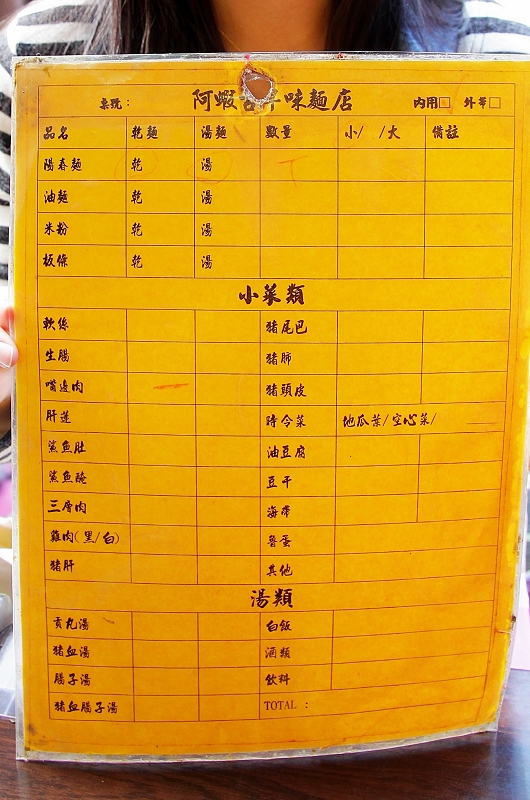 桌號： 阿蝦古早味麵店 內用□ 外帶□
品名 乾麵 湯麵 數量 小/ /大 備註
陽春麵 乾 湯
油麵 乾 湯
米粉 乾 湯
板條 乾 湯
小菜類
軟絲 豬尾巴
生腸 豬肺
嘴邊肉 豬頭皮
肝蓮 時令菜 地瓜葉/空心菜/
鯊魚肚 油豆腐
鯊魚醃 豆干
三層肉 海帶
雞肉(黑/白) 魯蛋
豬肝 其他
湯類
貢丸湯 白飯
豬血湯 酒類
腸子湯 飲料
豬血腸子湯 TOTAL：